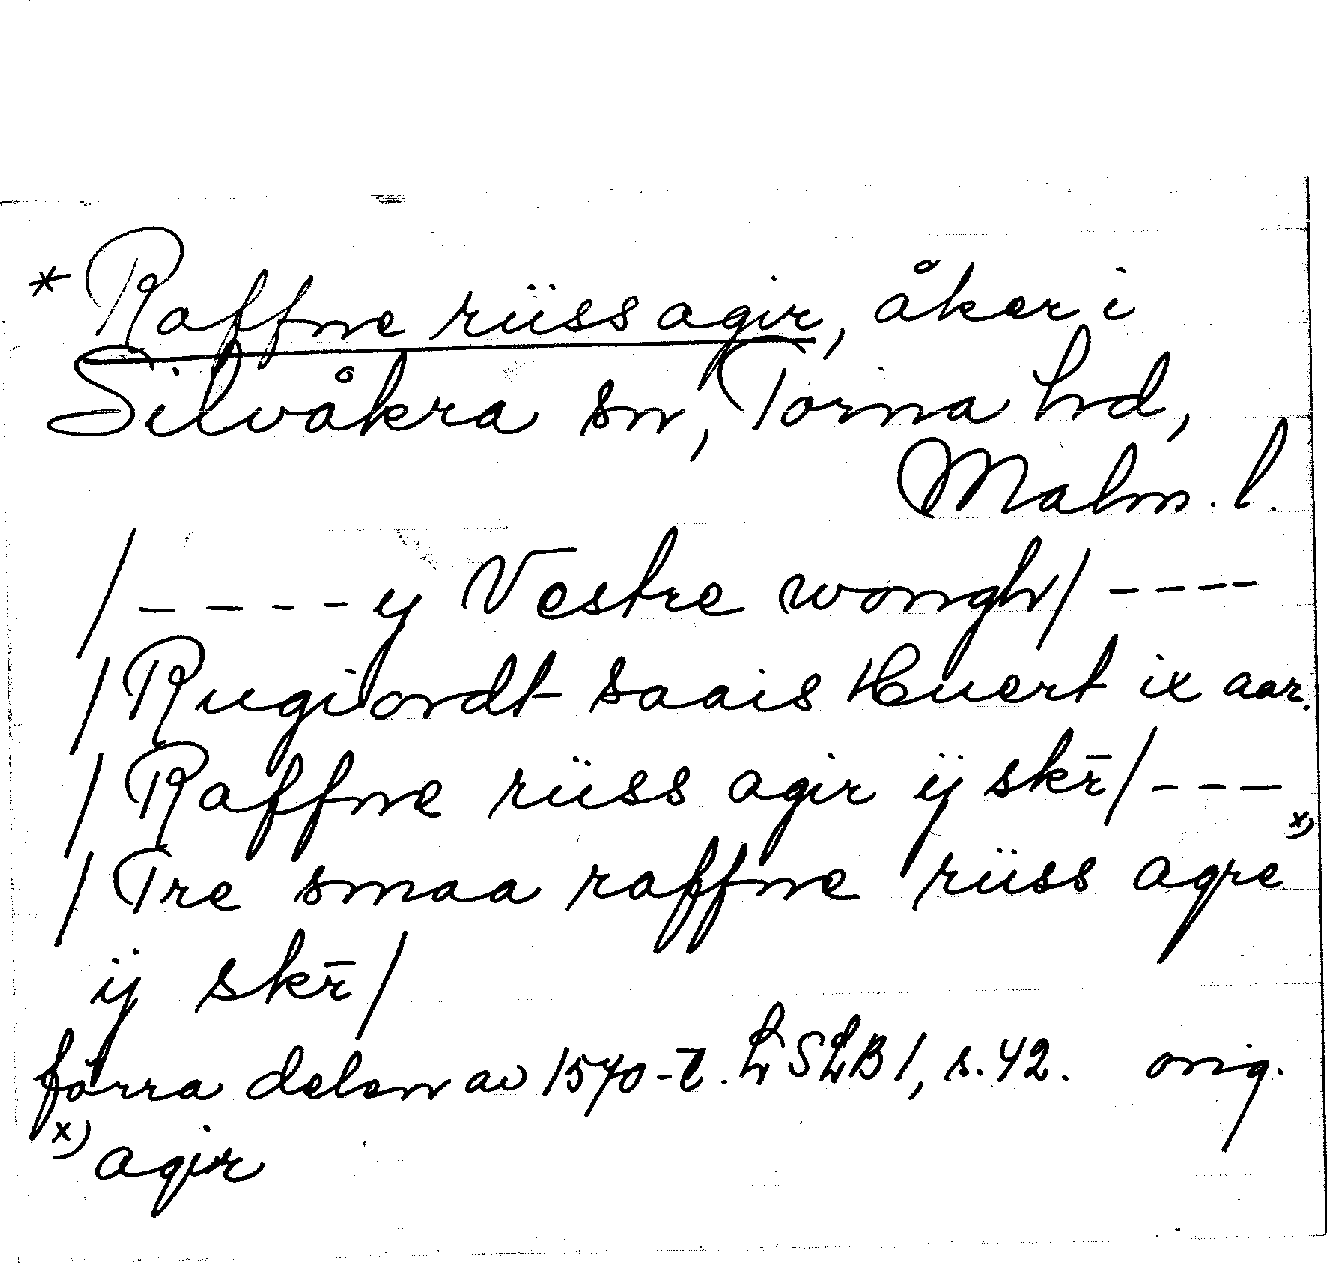 * Raffne rüss agir, åker i
Silvåkra sn, Torna hd,
Malm. l.
/ - - - - y Vestre wongh/ - - - -
/ Rugiordt saais Huert ix aar.
/ Raffne rüss agir ÿ skr̄/ - - -
/ Tre smaa raffne rüss agre x)
ÿ skr̄/
förra delen av 1570-t. LSLB 1, s. 42. orig.
x) agir